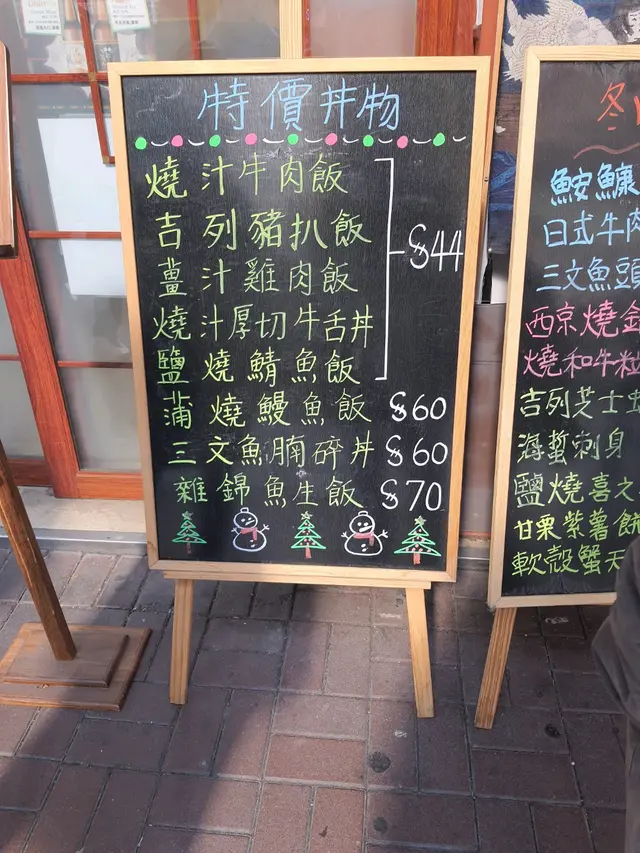 特價丼物
燒汁牛肉飯
吉列豬扒飯
薑汁雞肉飯
燒汁厚切牛舌丼
鹽燒鯖魚飯
$44
蒲燒鰻魚飯 $60
三文魚腩碎丼 $60
雜錦魚生飯 $70
冬
鮟鱇
日式牛肉
三文魚頭
西京燒
燒和牛粒
吉列芝士
海蜇刺身
鹽燒喜之
甘栗紫薯餅
軟殼蟹天